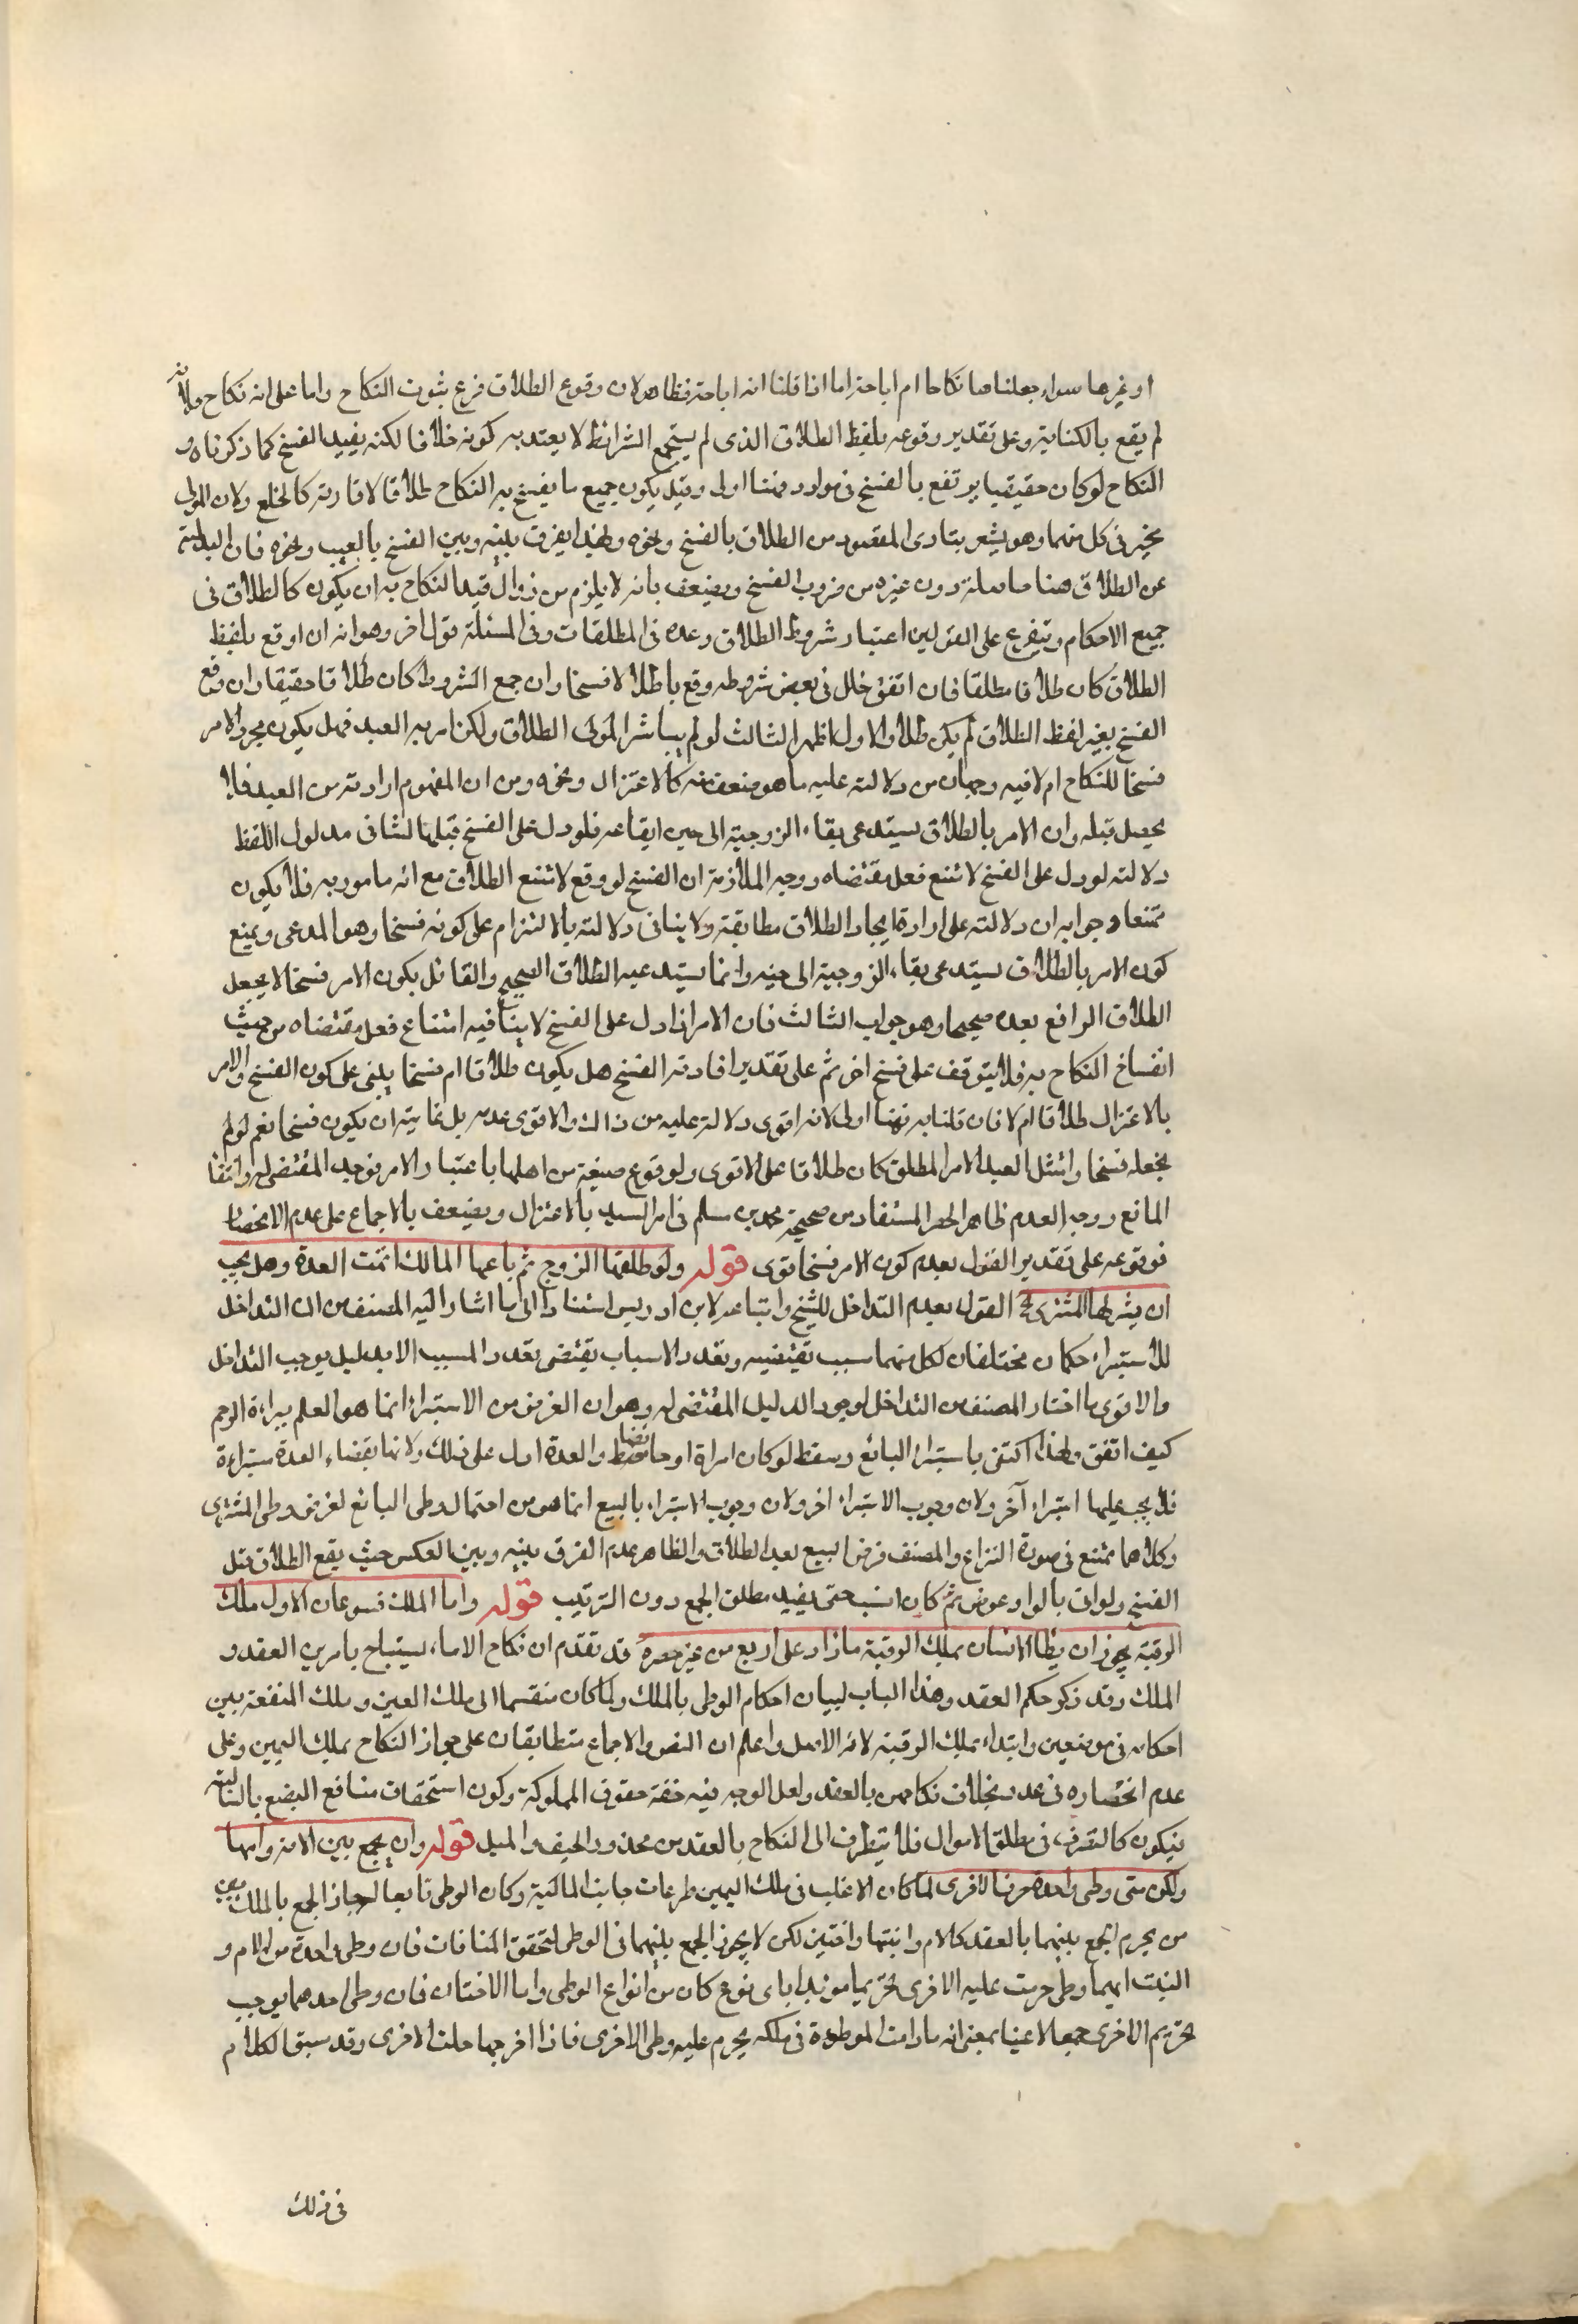 او غيرها سواء جعلناها نكاحا ام اباحة اما اذا قلنا انه اباحة فظاهر لان وقوع الطلاق فرع ثبوت النكاح واما على انه نكاح فلانه
لم يقع بالكناية وعلى تقدير وقوعه بلفظ الطلاق الذى لم يستجمع الشرائط لا يعتد به كونه طلاقا لكنه يفيد الفسخ كما ذكرناه و
النكاح لو كان حقيقيا يرتفع بالفسخ فى موارد فهنا اولى وقيل يكون جميع ما يفسخ به النكاح طلاقا لافادته كالخلع ولان المولى
مخير فى كل منهما وهو يشعر بتادى المقصود من الطلاق بالفسخ ونحوه ولهذا يفرق بينه وبين الفسخ بالعيب ونحوه فان البدلية
عن الطلاق هنا حاصلة دون غيره من ضروب الفسخ ويضعف بانه لا يلزم من زوال قيد النكاح به ان يكون كالطلاق فى
جميع الاحكام ويتفرع على القولين اعتبار شروط الطلاق وعده فى المطلقات وفى المسئلة قول اخر وهو انه ان اوقع بلفظ
الطلاق كان طلاقا مطلقا فان اتفق خلل فى بعض شروطه وقع باطلا لا فسخا وان جمع الشروط كان طلاقا حقيقا وان وقع
الفسخ بغير لفظ الطلاق لم يكن طلاقا والاول اظهر الثالث لو لم يباشر المولى الطلاق ولكن امر به العبد فهل يكون مجرد الامر
فسخا للنكاح ام لا فيه وجهان من دلالته عليه ما هو اضعف منه كالاعتزال ونحوه ومن ان المفهوم ارادته من العبد فلا
يحصل قبله وان الامر بالطلاق يستدعى بقاء الزوجية الى حين ايقاعه فلو دل على الفسخ قبلها لنافى مدلول اللفظ
دلالته لو دل على الفسخ لامتنع فعل مقتضاه ووجه الملازمة ان الفسخ لو وقع لامتنع الطلاق مع انه مامور به فلا يكون
ممتنعا وجوابه ان دلالته على ارادة ايجاد الطلاق مطابقة ولا ينافى دلالته بالالتزام على كونه فسخا وهو المدعى ويمنع
كون الامر بالطلاق يستدعى بقاء الزوجية الى حينه وانما يستدعيه الطلاق الصحيح والقائل بكون الامر فسخا لا يجعل
الطلاق الواقع بعده صحيحا وهو جواب الثالث فان الامر اذا دل على الفسخ لا ينافيه امتناع فعل مقتضاه من حيث
انفساخ النكاح به فلا يتوقف على فسخ اخر ثم على تقدير افادته الفسخ هل يكون طلاقا ام فسخا يبنى على كون الفسخ والامر
بالاعتزال طلاقا ام لا فان قلنا به فهنا اولى لانه اقوى دلالة عليه من ذلك والاقوى عدمه بل غايته ان يكون فسخا نعم لو لم
نجعله فسخا وامتثل العبد الامر المطلق كان طلاقا على الاقوى ولوقوع صيغة من اهلها باعتبار الامر فوجد المقتضى له وانتفا
المانع ووجه العدم ظاهر الحصر المستفاد من صحيحة محمد بن مسلم فى امر السيد بالاعتزال ويضعف بالاجماع على عدم الانحصار
فوقوعه على تقدير القول بعدم كون الامر فسخا قوى قوله ولو طلقها الزوج ثم باعها المالك اتمت العدة وهل يجب
ان يستبرئها المشترى الخ القول بعدم التداخل للشيخ واتباعه لابن ادريس استنادا الى ما اشار اليه المصنف من ان التداخل
للاستبراء حكمان مختلفان لكل منهما سبب تقيتضيه وتعدد الاسباب يقتضى تعدد المسبب الا بدليل يوجب التداخل
والاقوى ما اختار المصنف من التداخل لوجود الدليل المقتضى له وهو ان الغرض من الاستبراء انما هو العلم ببراءة الرحم
كيف اتفق ولهذا اكتفى باستبراء البائع وسقط لو كان امراة او حائضا فقط والعدة ادل على ذلك ولانها بقضاء العدة مستبراءة
فلا يجب عليها استبراء آخر ولان وجوب الاستبراء اخر ولان وجوب الاستبراء بالبيع انما هو من احتمال وطى البائع لغرض وطى المشترى
وكلاهما ممتنع فى صورة النزاع والمصنف فرض البيع بعد الطلاق والظاهر عدم الفرق بينه وبين العكس حيث يقع الطلاق قبل
الفسخ ولو اتى بالواو عوض ثم كان انسب حتى يفيد مطلق الجمع دون الترتيب قوله واما الملك فنوعان الاول ملك
الرقبة يجوز ان يطا الانسان بملك الرقبة ما زاد على اربع من غير حصر قد تقدم ان نكاح الاماء يستباح بامرين العقد و
الملك وقد ذكر حكم العقد وهذا الباب لبيان احكام الوطى بالملك ولما كان منقسما الى ملك العين وملك المنفعة بين
احكامه فى موضعين وابتداء بملك الرقبة لانه الاصل واعلم ان النص والاجماع متطابقان على جواز النكاح بملك اليمين وعلى
عدم انحصاره فى عدد بخلاف نكاحهن بالعقد ولعل الوجه فيه خفة حقوق المملوكة وكون استحقاق منافع البضع بالتالية
فيكون كالتصرف فى مطلق الاموال فلا يتطرق الى النكاح بالعقد من محذور الحيف والميل قوله وان يجمع بين الامة وامها
ولكن متى وطى واحدة حرمت الاخرى لما كان الاغلب فى ملك اليمين مراعات جانب المالكية وكان الوطى تابعا له جاز الجمع بالملك بين
من يحرم الجمع بينهما بالعقد كالام وابنتها واختين لكن لا يجوز الجمع بينهما فى الوطى لتحقق المنافات فان وطى واحدة من الام و
البنت ايهما وطى حرمت عليه الاخرى تحريما مؤبدا باى نوع كان من انواع الوطى واما الاختان فان وطى احدهما يوجب
تحريم الاخرى جمعا لا عينا بمعنى انه ما دامت الموطوءة فى ملكه يحرم عليه وطى الاخرى فاذا اخرجها حلت الاخرى وقد سبق الكلام
فى ذلك